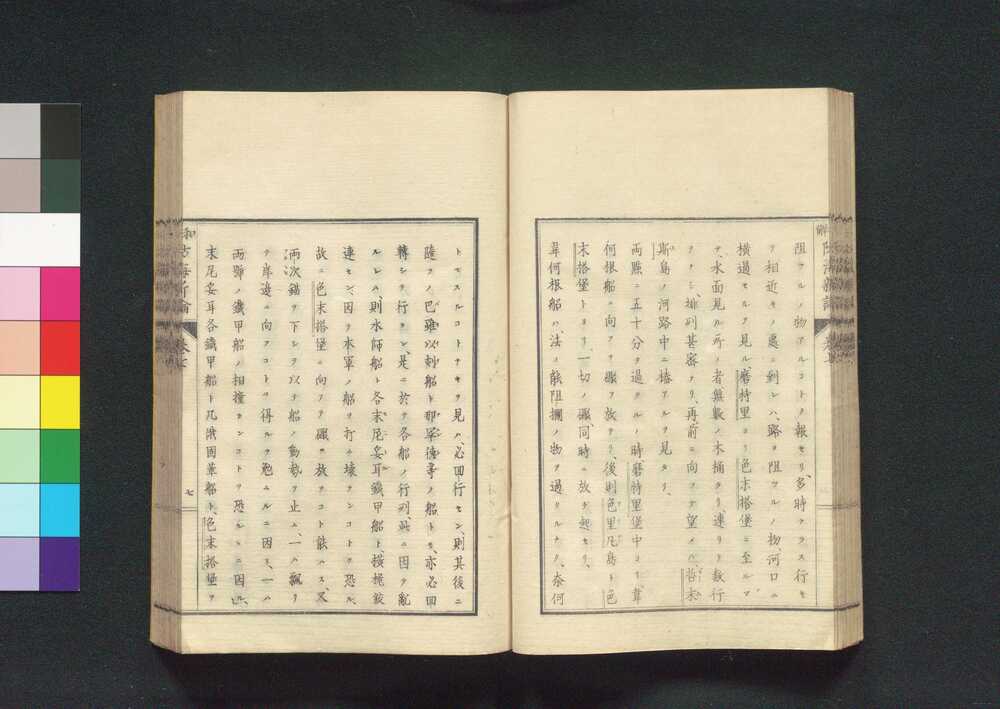 阻フルノ物アルコトヲ報セリ、多時ナラス行キ
ヲ相近キノ處ニ到レハ、路ヲ阻フルノ物、河口ニ
橫過セルヲ見ル、磨特里ヨリ色末搭堡ニ至ルマ
テ、水面見ル所ノ者無數ノ木桶タリ、連リテ數行
ヲナシ排列甚密ナリ、再前ニ向フテ望メハ、哲末
斯島ノ河路中ニ樁アルヲ見タリ、
兩點ニ五十分ヲ過クルノ時磨特里堡中ヨリ、韋
何根船ニ向フテ礮ヲ放テリ、後則色里凡島ト色
末搭堡トヨリ、一切ノ礮、同時ニ放チ起セリ、
韋何根船ハ、法ノ能阻攔ノ物ヲ過クルナク、奈何
トモスルコトナキヲ見ハ、必回行セン、則其後ニ
隨フノ巴雖以刺船ト那軍德喜ノ船トモ、亦必回
轉シテ行カン、是ニ於テ各船ノ行列、此ニ因テ亂
ルレハ、則水師船ト各末尼妥耳鐵甲船ト、橫掩鮫
連セン、因テ本軍ノ船ヲ打チ壞ランコトヲ恐ル、
故ニ色末搭堡ニ向フテ礮ヲ放ツコト能ハス、又
兩次錨ヲ下シテ以テ船ノ動勢ヲ止ム、一ハ飄リ
テ岸邊ニ向フコトヲ得ルヲ免ムルニ因ミ、一ハ
兩號ノ鐵甲船ノ相撞カンコトヲ恐ルルニ因ル、
末尾妥耳各鐵甲船ト凡俄固革船ト、色末搭堡ヲ
七